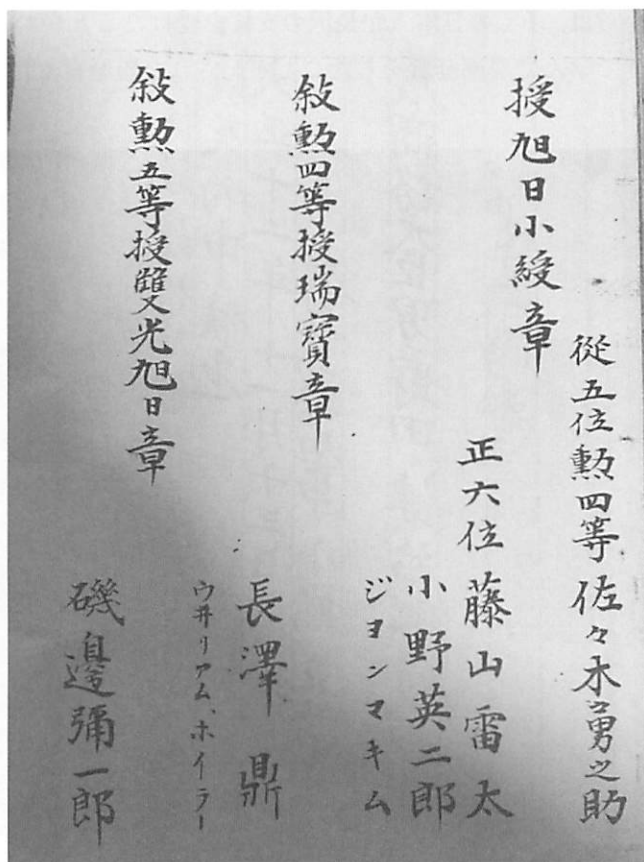 從五位勲四等佐々木勇之助
授旭日小綬章
正六位藤山雷太
小野英二郎
ジヨンマキム
敍勲四等授瑞寶章
長澤鼎
ウ井リアム、ホイラー
敍勲五等授雙光旭日章
磯邊彌一郎